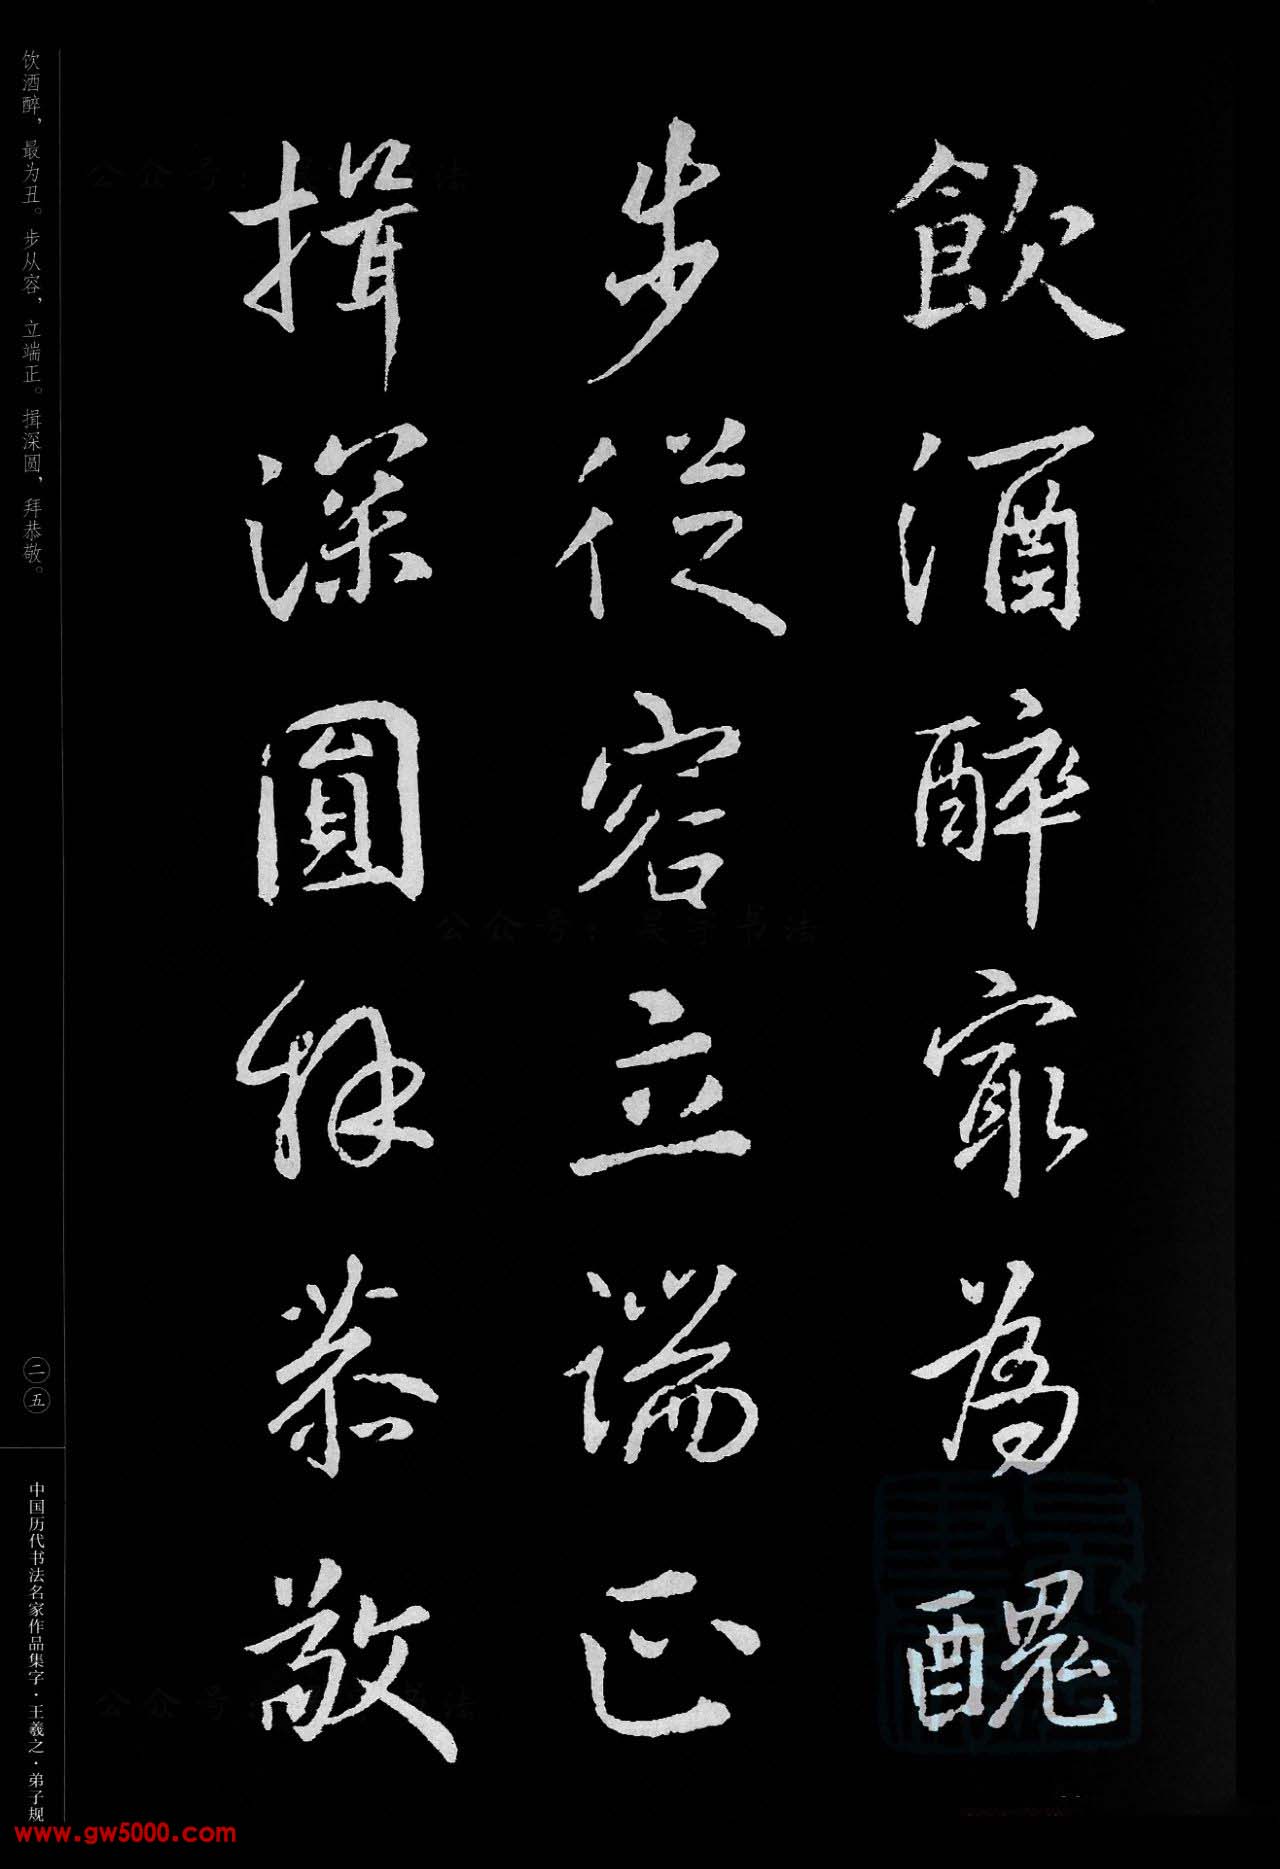 飲酒醉寂為醜
步從容立端正
揖深圓拜恭敬
饮酒醉，最为丑。步从容，立端正。揖深圆，拜恭敬。
二五
中国历代书法名家作品集字·王羲之·弟子规
公众号：昊宇书法
www.gw5000.com